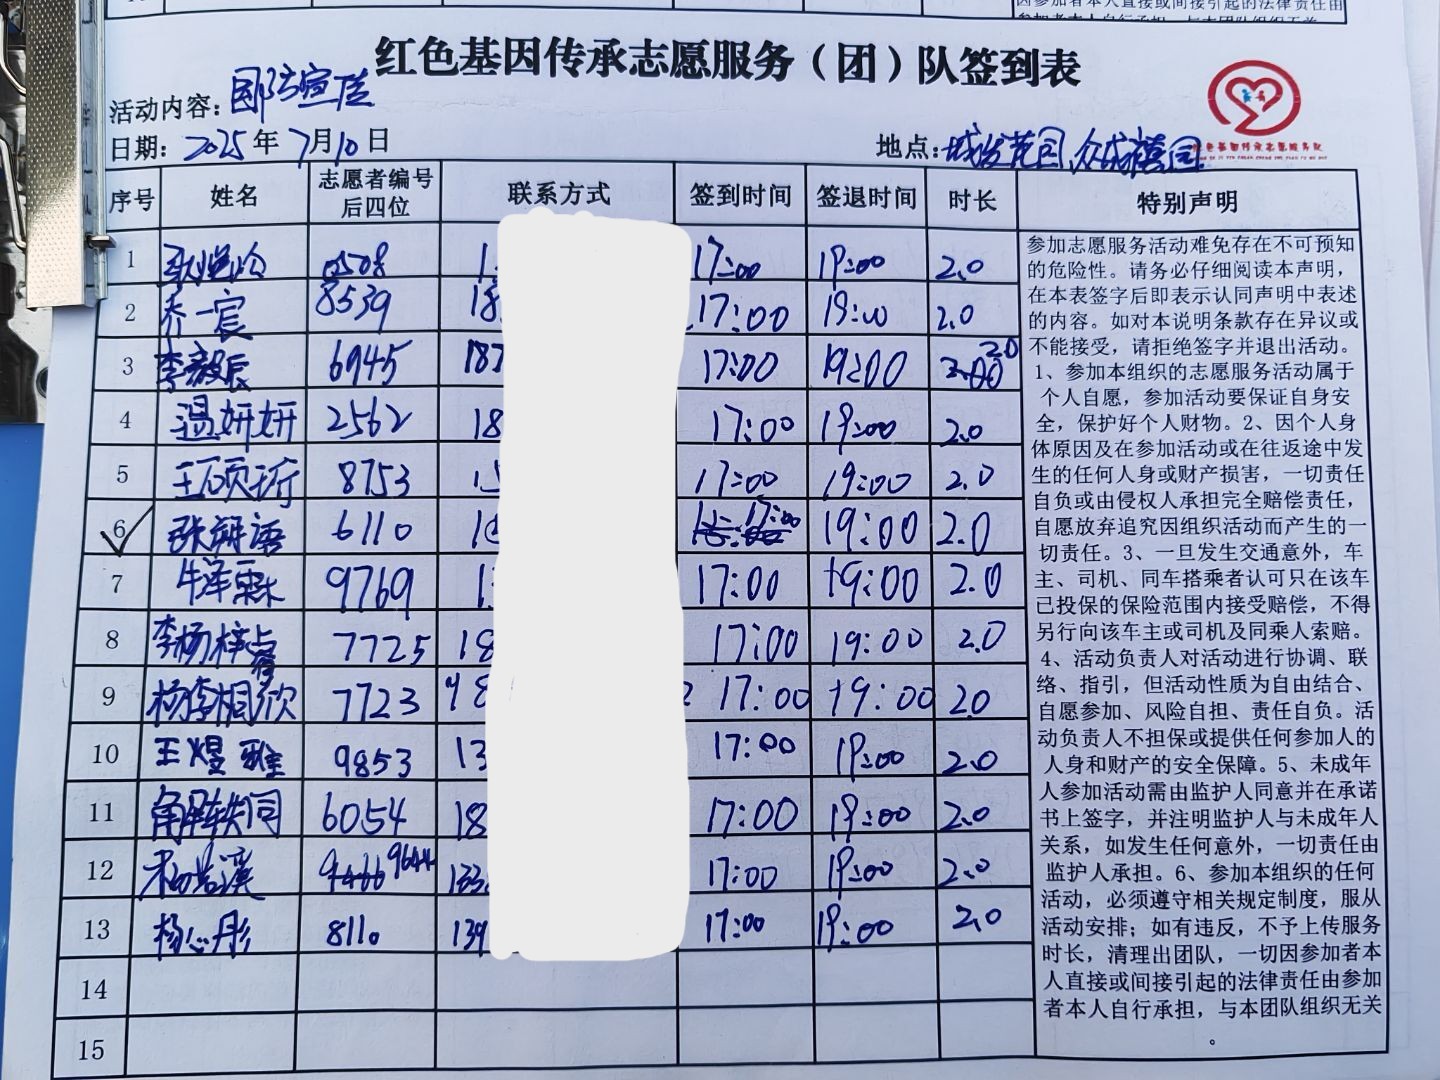 红色基因传承志愿服务（团）队签到表
活动内容：国防宣传
日期：2025年7月10日
地点：城发花园、众成
序号 姓名 志愿者编号后四位 联系方式 签到时间 签退时间 时长 特别声明
1 0508 1 17:00 19:00 2.0
2 乔一宸 8539 18 17:00 19:00 2.0
3 李毅辰 6945 187 17:00 19:00 2.0
4 温妍妍 2562 18 17:00 19:00 2.0
5 王硕珩 8753 15 17:00 19:00 2.0
6 张舒语 6110 18 17:00 19:00 2.0
7 牛泽霖 9769 1 17:00 19:00 2.0
8 李杨梓睿 7725 18 17:00 19:00 2.0
9 杨李相欣 7723 18 17:00 19:00 2.0
10 王煜雅 9853 13 17:00 19:00 2.0
11 6054 18 17:00 19:00 2.0
12 杨若溪 9644 133 17:00 19:00 2.0
13 杨心彤 8110 139 17:00 19:00 2.0
14
15
参加志愿服务活动难免存在不可预知
的危险性。请务必仔细阅读本声明，
在本表签字后即表示认同声明中表述
的内容。如对本说明条款存在异议或
不能接受，请拒绝签字并退出活动。
1、参加本组织的志愿服务活动属于
个人自愿，参加活动要保证自身安
全，保护好个人财物。2、因个人身
体原因及在参加活动或在往返途中发
生的任何人身或财产损害，一切责任
自负或由侵权人承担完全赔偿责任，
自愿放弃追究因组织活动而产生的一
切责任。3、一旦发生交通意外，车
主、司机、同车搭乘者认可只在该车
已投保的保险范围内接受赔偿，不得
另行向该车主或司机及同乘人索赔。
4、活动负责人对活动进行协调、联
络、指引，但活动性质为自由结合、
自愿参加、风险自担、责任自负。活
动负责人不担保或提供任何参加人的
人身和财产的安全保障。5、未成年
人参加活动需由监护人同意并在承诺
书上签字，并注明监护人与未成年人
关系，如发生任何意外，一切责任由
监护人承担。6、参加本组织的任何
活动，必须遵守相关规定制度，服从
活动安排；如有违反，不予上传服务
时长，清理出团队，一切因参加者本
人直接或间接引起的法律责任由参加
者本人自行承担，与本团队组织无关
。